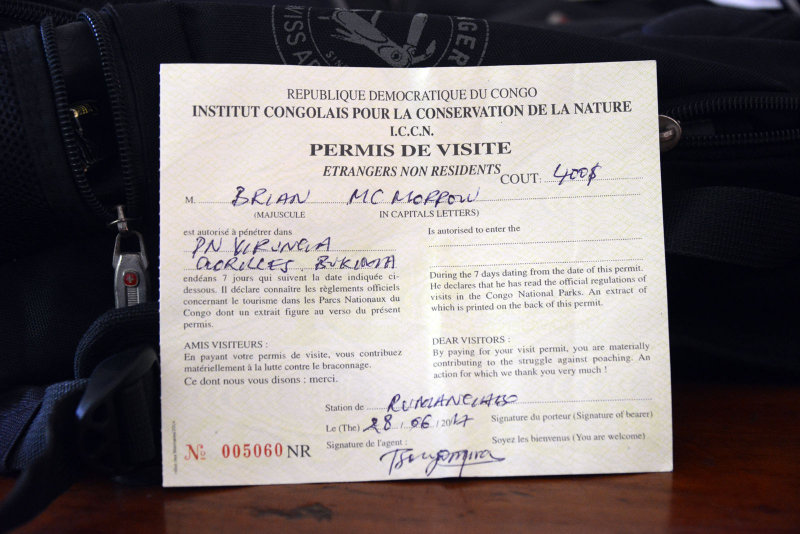 REPUBLIQUE DEMOCRATIQUE DU CONGO
INSTITUT CONGOLAIS POUR LA CONSERVATION DE LA NATURE
I.C.C.N.
PERMIS DE VISITE
ETRANGERS NON RESIDENTS
COUT: 400$
M. BRIAN MC MORROW
(MAJUSCULE IN CAPITALS LETTERS)
est autorisé à pénétrer dans
PN VIRUNGA
GORILLES BUKIMA
endéans 7 jours qui suivent la date indiquée ci-
dessous. Il déclare connaître les règlements officiels
concernant le tourisme dans les Parcs Nationaux du
Congo dont un extrait figure au verso du présent
permis.
Is authorised to enter the
During the 7 days dating from the date of this permit.
He declares that he has read the official regulations of
visits in the Congo National Parks. An extract of
which is printed on the back of this permit.
AMIS VISITEURS :
En payant votre permis de visite, vous contribuez
matériellement à la lutte contre le braconnage.
Ce dont nous vous disons : merci.
DEAR VISITORS :
By paying for your visit permit, you are materially
contributing to the struggle against poaching. An
action for which we thank you very much !
Station de RUMANGABO
Le (The) 28 / 06 / 2017
Signature du porteur (Signature of bearer)
Signature de l'agent :
Soyez les bienvenus (You are welcome)
№ 005060 NR